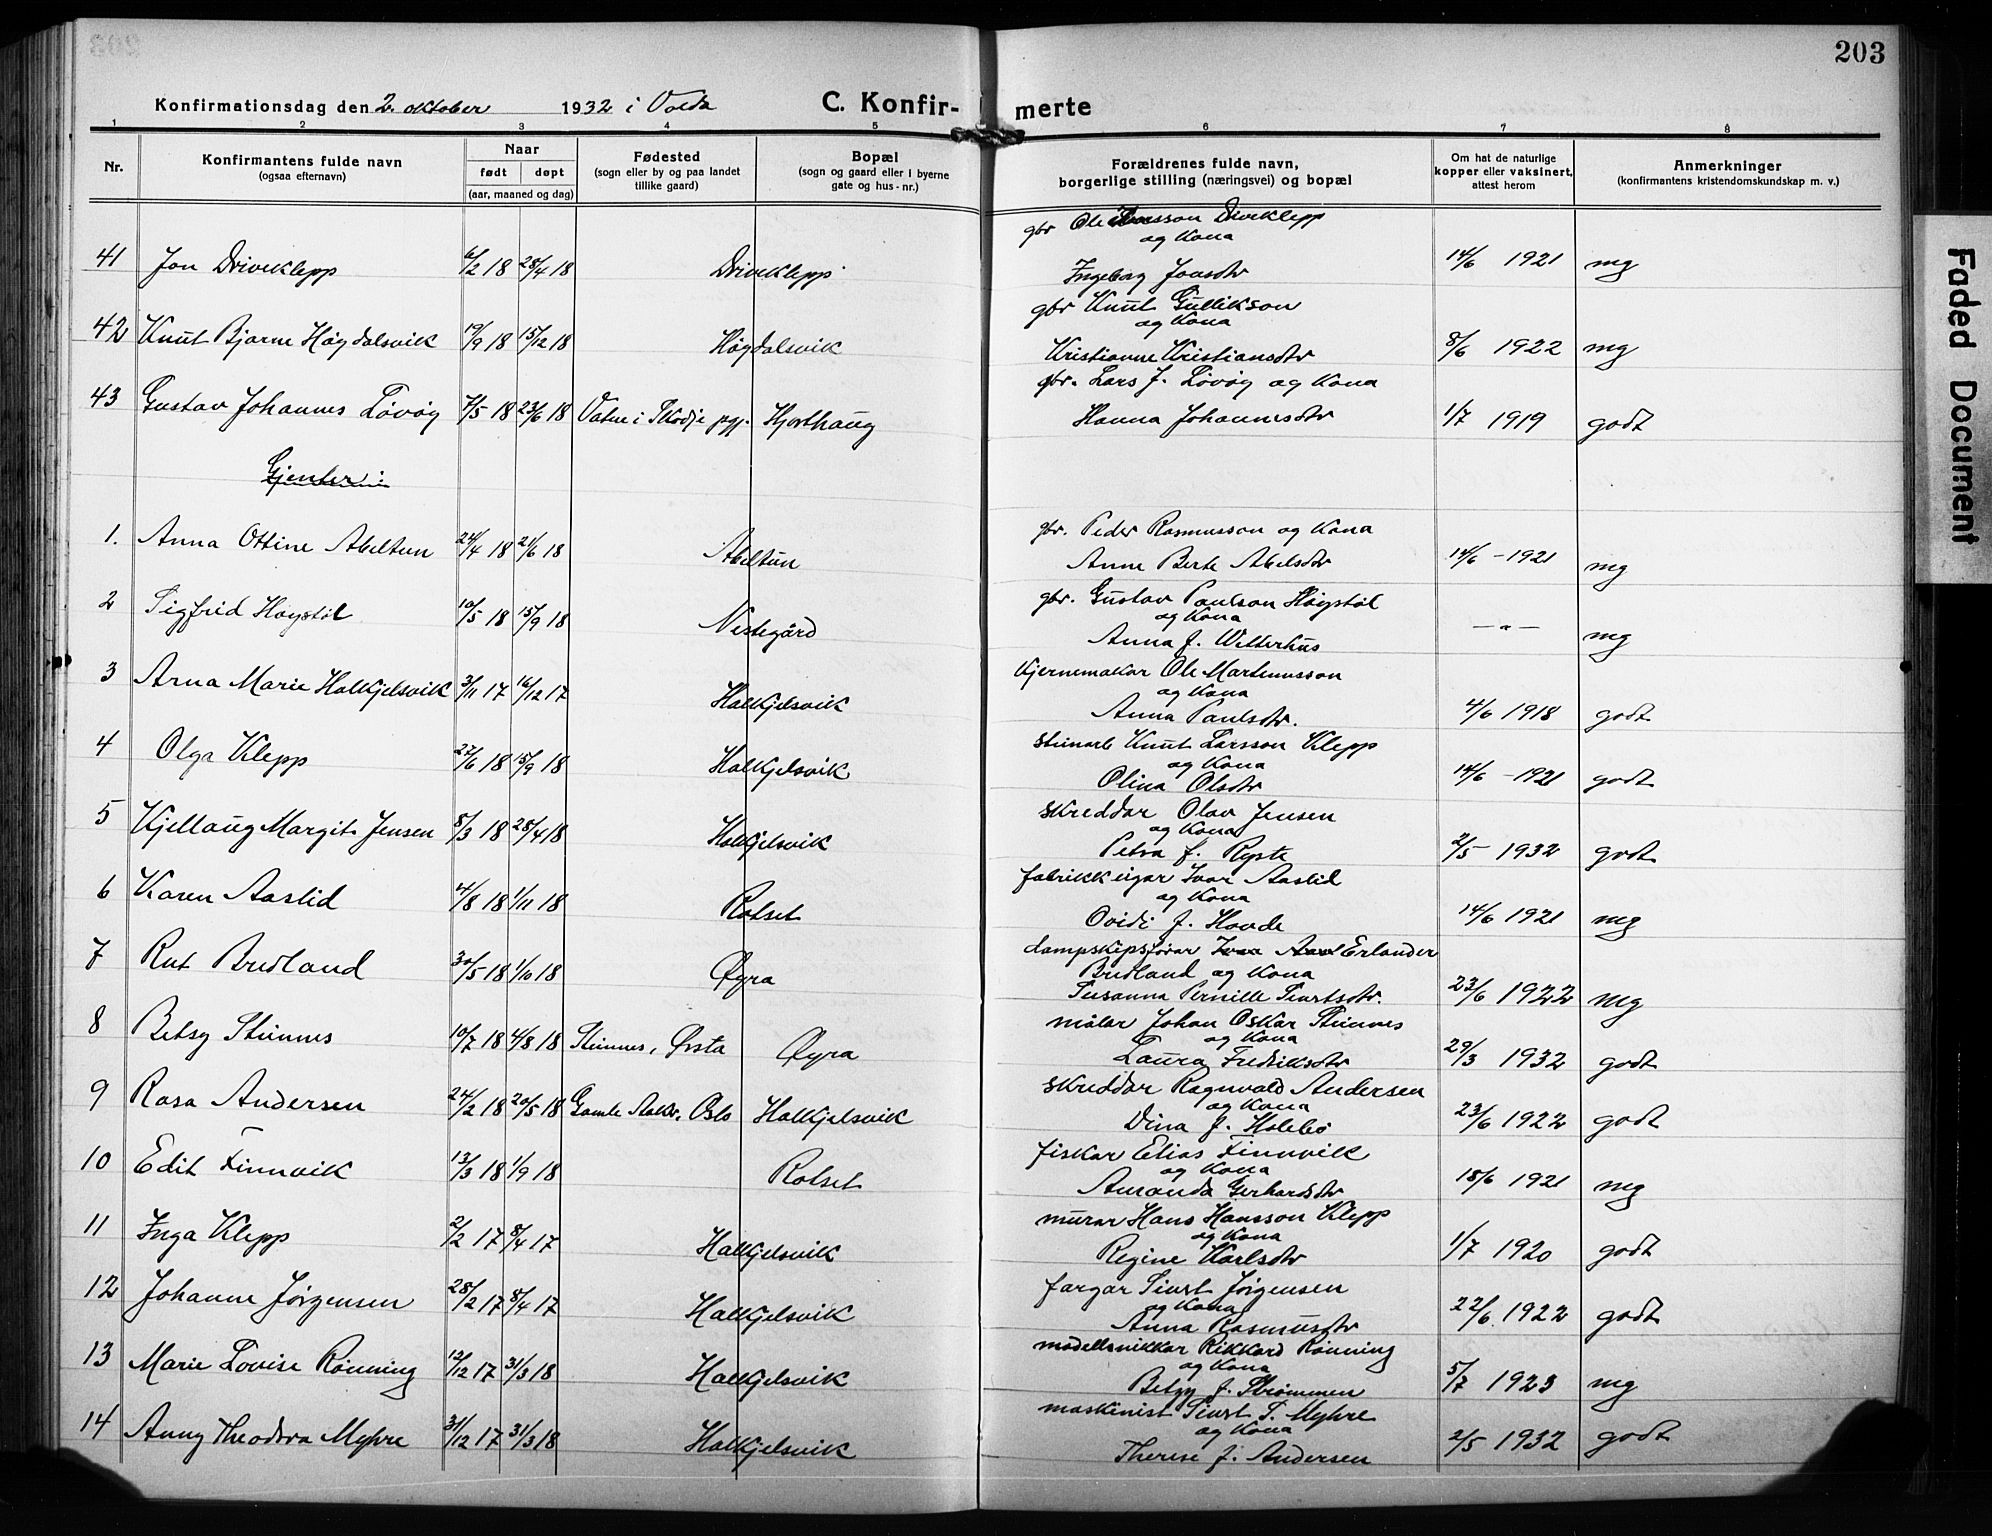 203
Konfirmationsdag den 2. oktober 1932 i Volda C. Konfir- merte
1 2 3 4 5 6 7 8
Nr. Konfirmantens fulde navn (ogsaa efternavn) Naar født døpt (aar, maaned og dag) Fødested (sogn eller by og paa landet tillike gaard) Bopæl (sogn og gaard eller i byerne gate og hus-nr.) Forældrenes fulde navn, borgerlige stilling (næringsvei) og bopæl Om hat de naturlige kopper eller vaksinert, attest herom Anmerkninger (konfirmantens kristendomskundskap m. v.)
gbr Ole Driveklepp
og kona
41 Jon Driveklepp 6/2 18 28/4 18 Driveklepp Ingeborg Jonsdtr 14/6 1921 mg
gbr Knut Gullikson
og kona
42 Knut Bjarne Høgdalsvik 19/9 18 15/12 18 Høgdalsvik Kristianne Kristiansdtr 8/6 1922 mg
gbr. Lars J. Løvøy og kona
43 Gustav Johannes Løvøy 7/5 18 23/6 18 Vatne i Skodje pgj. Hjorthaug Hanna Johannesdtr 1/7 1919 godt
Gjenter:
gbr. Peder Rasmusson og kona
1. Anna Ottine Abeltun 24/4 18 2/6 18 Abeltun Anne Berte Abelsdtr 14/6 - 1921 mg
gbr. Gustav Paulson Høystøl
og kona
2 Sigfrid Høystøl 10/5 18 15/9 18 Nestegård Anna f. Welterhus — " — mg
Kjernemakar Ole Martinusson
og kona
3 Arna Marie Halkjelsvik 3/11 17 16/12 17 Halkjelsvik Anna Paulsdtr. 4/6 1918 godt
steinarb Knut Larsson Klepp
og kona
4 Olga Klepp 27/6 18 15/9 18 Halkjelsvik Olina Olsdtr 14/6 - 1921 godt
skreddar Olav Jensen
og kona
5 Kjellaug Margit Jensen 8/3 18 28/4 18 Halkjelsvik Petra f. Ryste 2/5 1932 godt
fabrikkeigar Ivar Aaslid
og kona
6 Karen Aaslid 4/8 18 1/11 18 Rotset Ovidi f. Hovde 14/6 1921 mg
dampskipsførar Ivar Erlander
Bredland og kona
7 Rut Bredland 30/5 18 1/10 18 Øyra Susanna Pernille Sivertsdtr. 23/6 1922 mg
målar Johan Oskar Steinnes
og kona
8 Betsy Steinnes 10/7 18 4/8 18 Steinnes, Ørsta Øyra Laura Fredriksdtr 29/3 1932 godt
skreddar Ragnvald Andersen
og kona
9 Rosa Andersen 24/2 18 20/5 18 Gamle Aaker, Oslo Halkjelsvik Dina f. Holebø 23/6 1922 godt
fiskar Elias Finnvik
og kona
10 Edit Finnvik 13/3 18 1/9 18 Rotset Amanda Gerhardsdtr 18/6 1921 mg
murar Hans Hansson Klepp
og kona
11 Inga Klepp 2/2 17 8/4 17 Halkjelsvik Regine Karlsdtr 1/7 1920 godt
fargar Sivert Jørgensen
og kona
12 Johanne Jørgensen 28/2 17 8/4 17 Halkjelsvik Anna Rasmusdtr 22/6 1922 godt
modellsnikkar Rikkard Rønning
og kona
13 Marie Lovise Rønning 12/12 17 31/3 18 Halkjelsvik Betzy f. Strømmen 5/7 1923 mg
maskinist Sivert T. Myhre
og kona
14 Anny Theodora Myhre 31/12 17 31/3 18 Halkjelsvik Therese f. Andersen 2/5 1932 godt
Faded Document